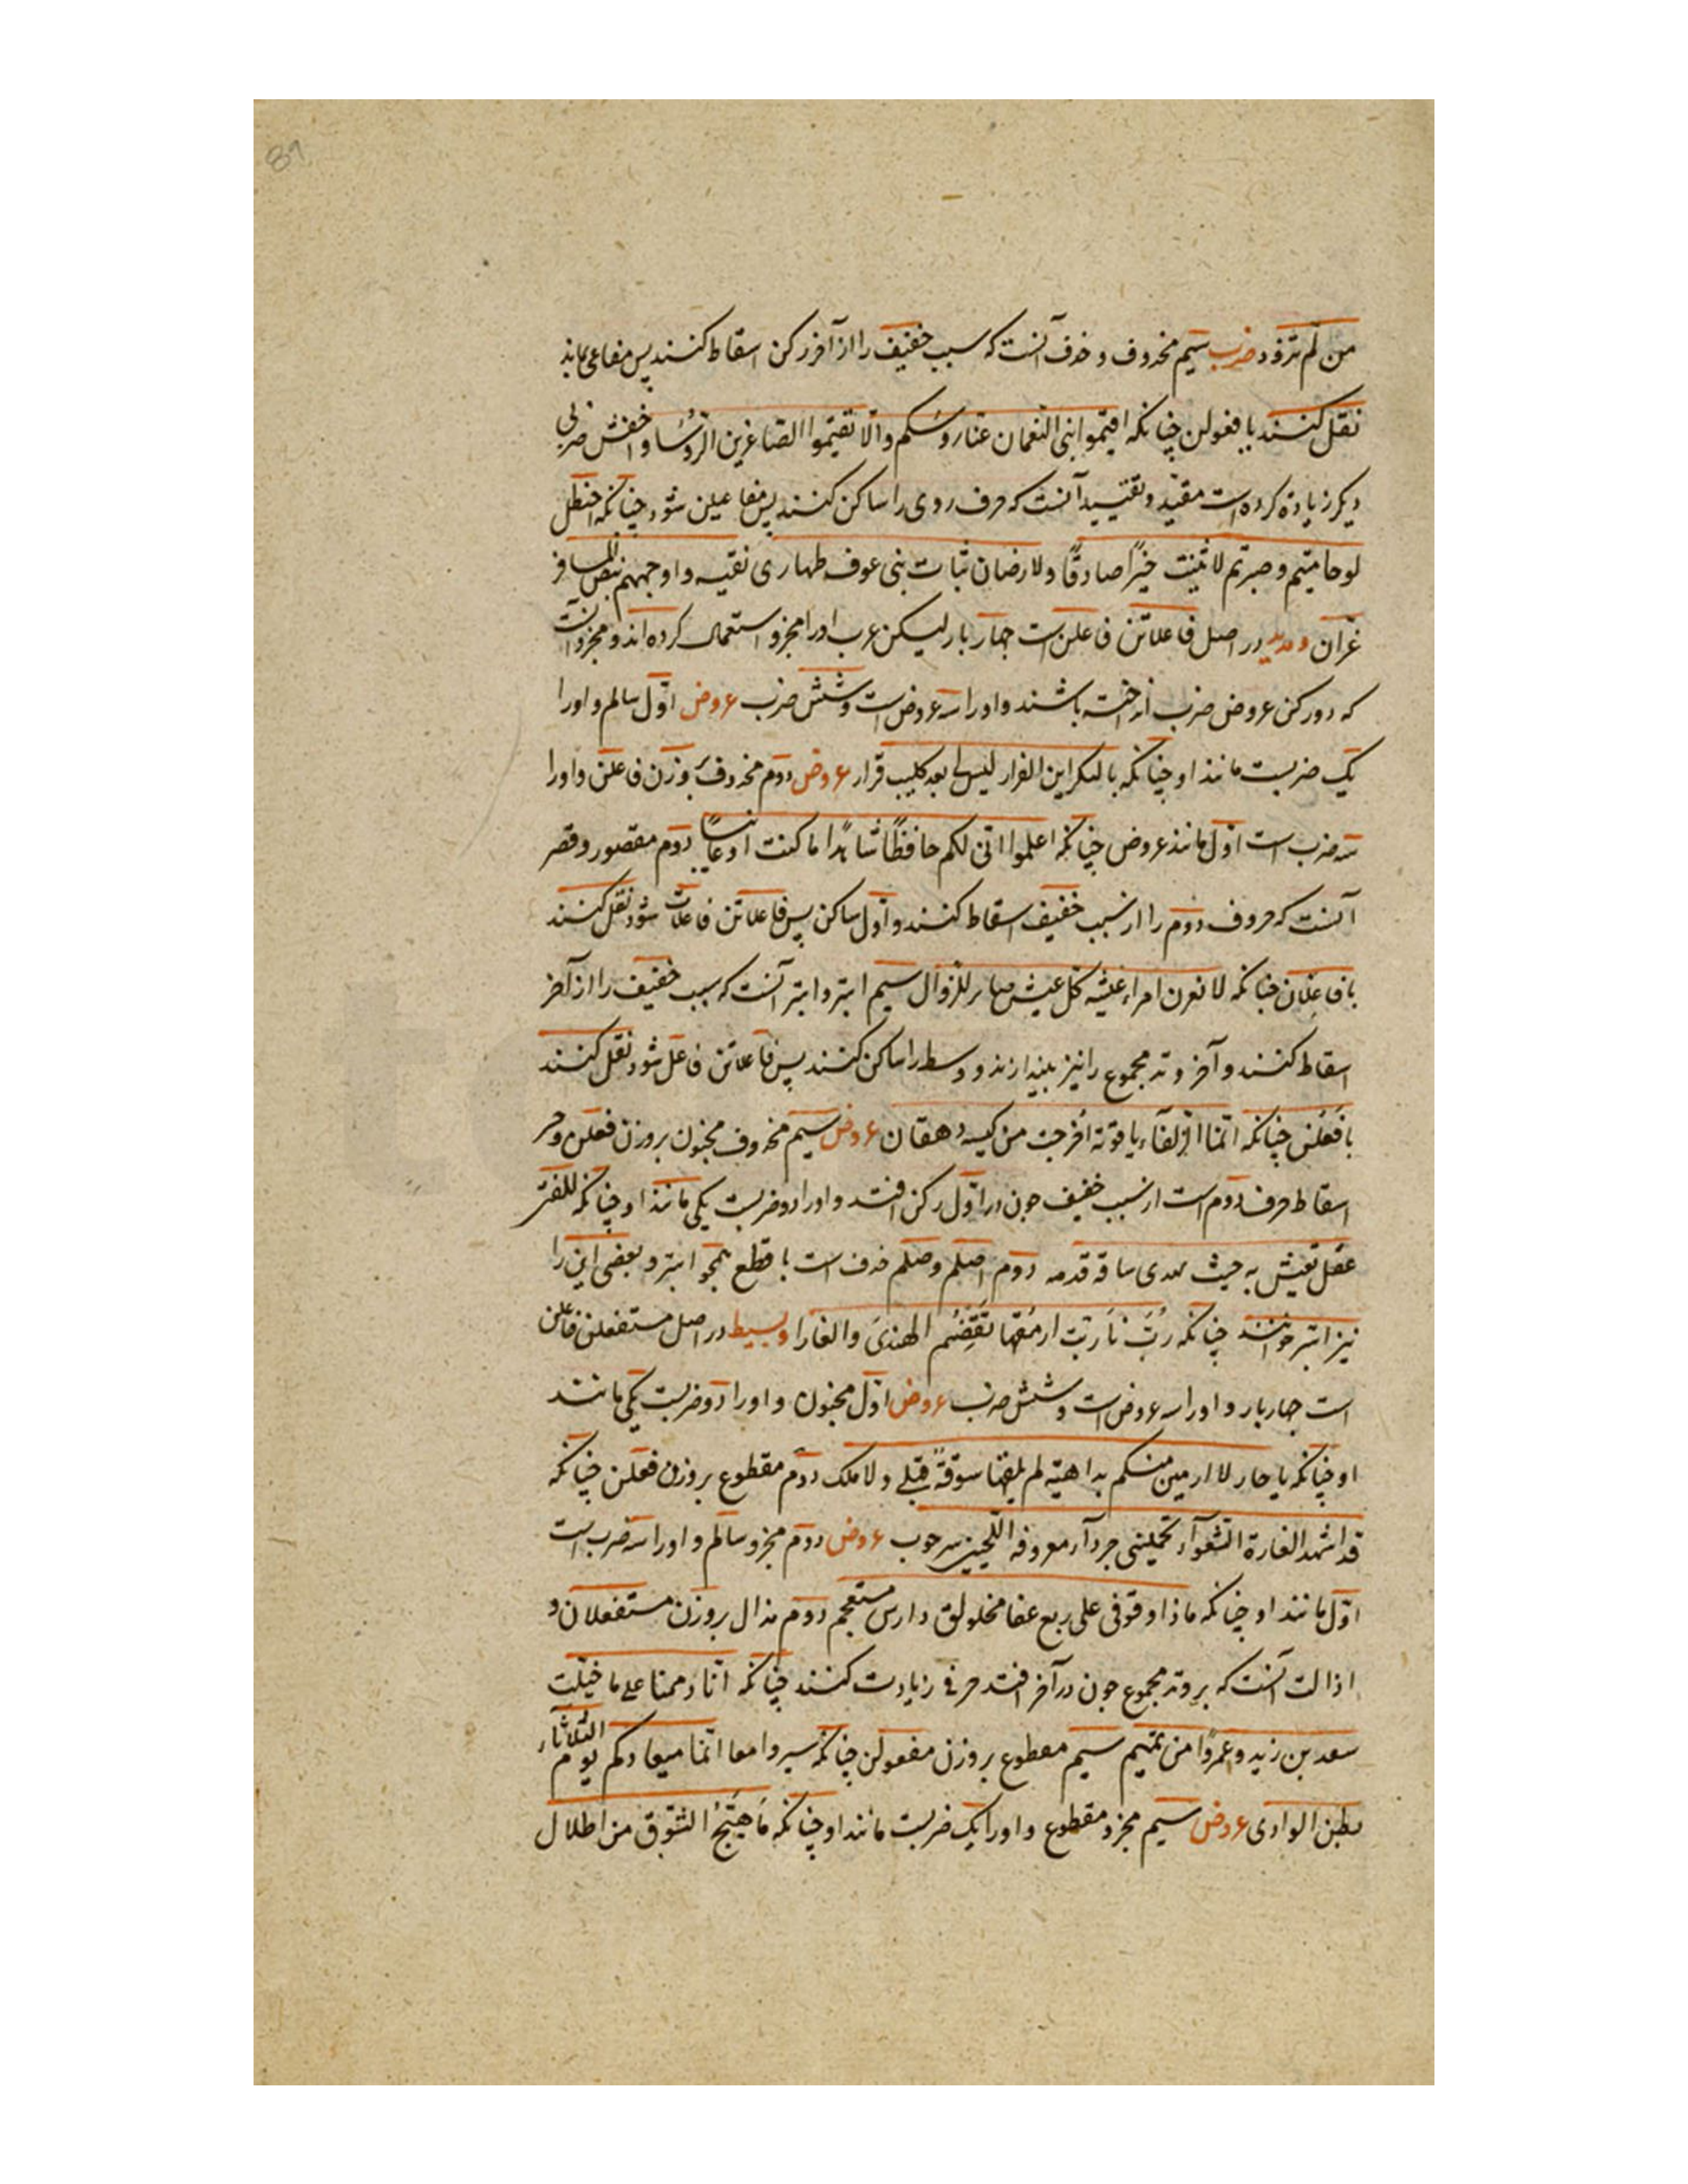 من لم تزود ضرب سیم محذوف و حذف آنست که سبب خفیف را از آخر رکن اسقاط کنند پس مفاعی ماند
نقل کنند با فعولن چنانکه اقیموا بنی النعمان عنا روسکم والا تقیموا الصاغرین الروسا و اخفش ضربی
دیکر زیادة کرده است مقید و تقیید آنست که حرف روی را ساکن کنند پس مفاعیلن شود چنانکه احنظل
لو حامیتم و صبرتم لاثنیت خیرًا صادقًا ولارضان ثیاب بنی عوف طهاری نقیه و اوجههم بیض المسافر
غران و مدید در اصل فاعلاتن فاعلن است جهار بار لیکن عرب او را مجزو استعمال کرده اند و مجزو آنست
که دو رکن عروض ضرب انداخته باشند و او را سه عروض است و شش ضرب عروض اول سالم و او را
یک ضربست مانند او چنانکه یا لبکر این الفرار لیس لی بعد کلیب قرار عروض دوم محذوف بوزن فاعلن و او را
سه ضرب است اول مانند عروض چنانکه اعلموا انی لکم حافظًا شاهدًا ما کنت او غایبا دوم مقصور و قصر
آنست که حروف دوم را از سبب خفیف اسقاط کنند و اول ساکن پس فاعلاتن فاعلات شود نقل کنند
با فاعلان چنانکه لا نغرن امراء عیشه کل عیش صایر للزوال سیم ابتر و ابتر آنست که سبب خفیف را از آخر
اسقاط کنند و آخر وتد مجموع را نیز بیندازند و وسط را ساکن کنند پس فاعلاتن فاعل شود نقل کنند
با فعلن چنانکه انما الزلفاء یاقوتة اخرجت من کیسه دهقان عروض سیم محذوف مخبون بر وزن فعلن و خبن
اسقاط حرف دوم است از سبب خفیف جون در اول رکن افتد و او را دو ضربست یکی مانند او چنانکه للفتی
عقل تعیش به حیث تهدی ساقه قدمه دوم اصلم و صلم حذف است با قطع همجو ابتر و بعضی این را
نیز ابتر خوانند چنانکه رُبَّ نَار بت ارمقها تقضم الهندی والغارا و بسیط در اصل مستفعلن فاعلن
است جهار بار و او را سه عروض است و شش ضرب عروض اول مخبون و او را دو ضربست یکی مانند
او چنانکه یا حار لا ارمین منکم بداهیة لم یلقها سوقةً قبلی و لا ملک دوم مقطوع بر وزن فعلن چنانکه
قد اشهد الغارة الشعوآء تحملینی جردآء معروفة اللحیین سرحوب عروض دوم مجزو سالم و او را سه ضرب است
اول مانند او چنانکه ماذا وقوفی علی ربع عفا مخلولق دارس مستعجم دوم مذال بر وزن مستفعلان و
اذالت آنست که بر وتد مجموع جون در آخر افتد حرفی زیادت کنند چنانکه انا ذممنا علی ما خیلت
سعد بن زید و عمرًوا من تمیم سیم مقطوع بر وزن مفعولن چنانکه سیروا معا انما میعادکم یوم الثلاثاء
بطن الوادی عروض سیم مجزو مقطوع و او را یک ضربست مانند او چنانکه مَا هَیَّجَ الشوق من اطلال